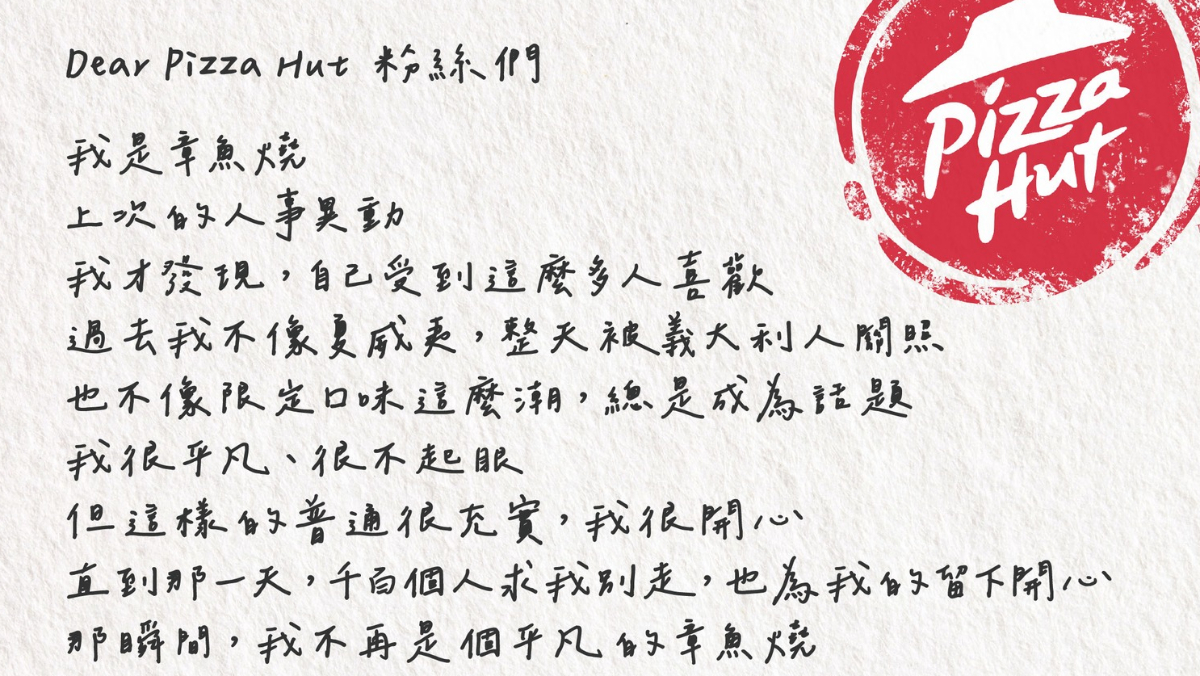 Dear Pizza Hut 粉絲們
Pizza
Hut
我是章魚燒
上次的人事異動
我才發現，自己受到這麼多人喜歡
過去我不像夏威夷，整天被義大利人關照
也不像限定口味這麼潮，總是成為話題
我很平凡、很不起眼
但這樣的普通很充實，我很開心
直到那一天，千百個人求我別走，也為我的留下開心
那瞬間，我不再是個平凡的章魚燒